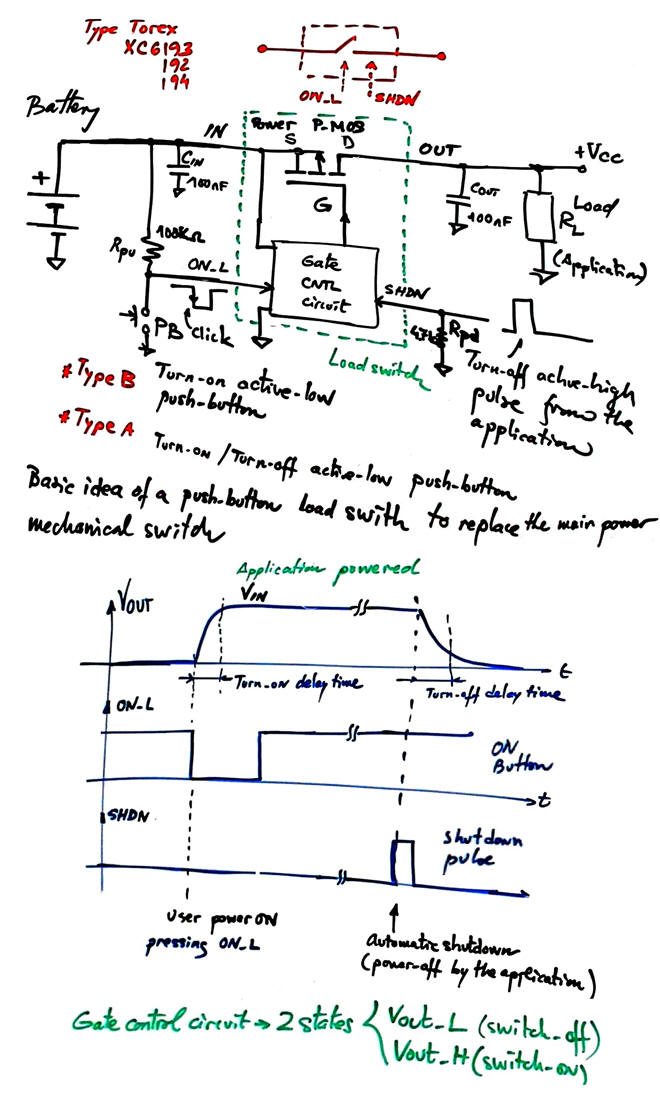 Type Torex
XC6193
192
194
ON_L
SHDN
Battery
IN
Power P-MOS
S
D
OUT
+Vcc
+
CIN
100nF
G
COUT
100nF
Load
RL
(Application)
100KΩ
Rpu
ON_L
Gate
CNTL
circuit
SHDN
PB
Click
4,7k
Rpd
Load switch
Turn-off active-high
pulse from the
application
*Type B Turn-on active-low
push-button
*Type A Turn-on / Turn-off active-low push-button
Basic idea of a push-button load swith to replace the main power
mechanical switch
Application powered
VOUT
VIN
t
Turn-on delay time
Turn-off delay time
ON_L
ON
Button
t
SHDN
Shutdown
pulse
User power ON
pressing ON_L
Automatic shutdown
(power-off by the application)
Gate control circuit → 2 states
Vout_L (switch-off)
Vout_H (switch-on)